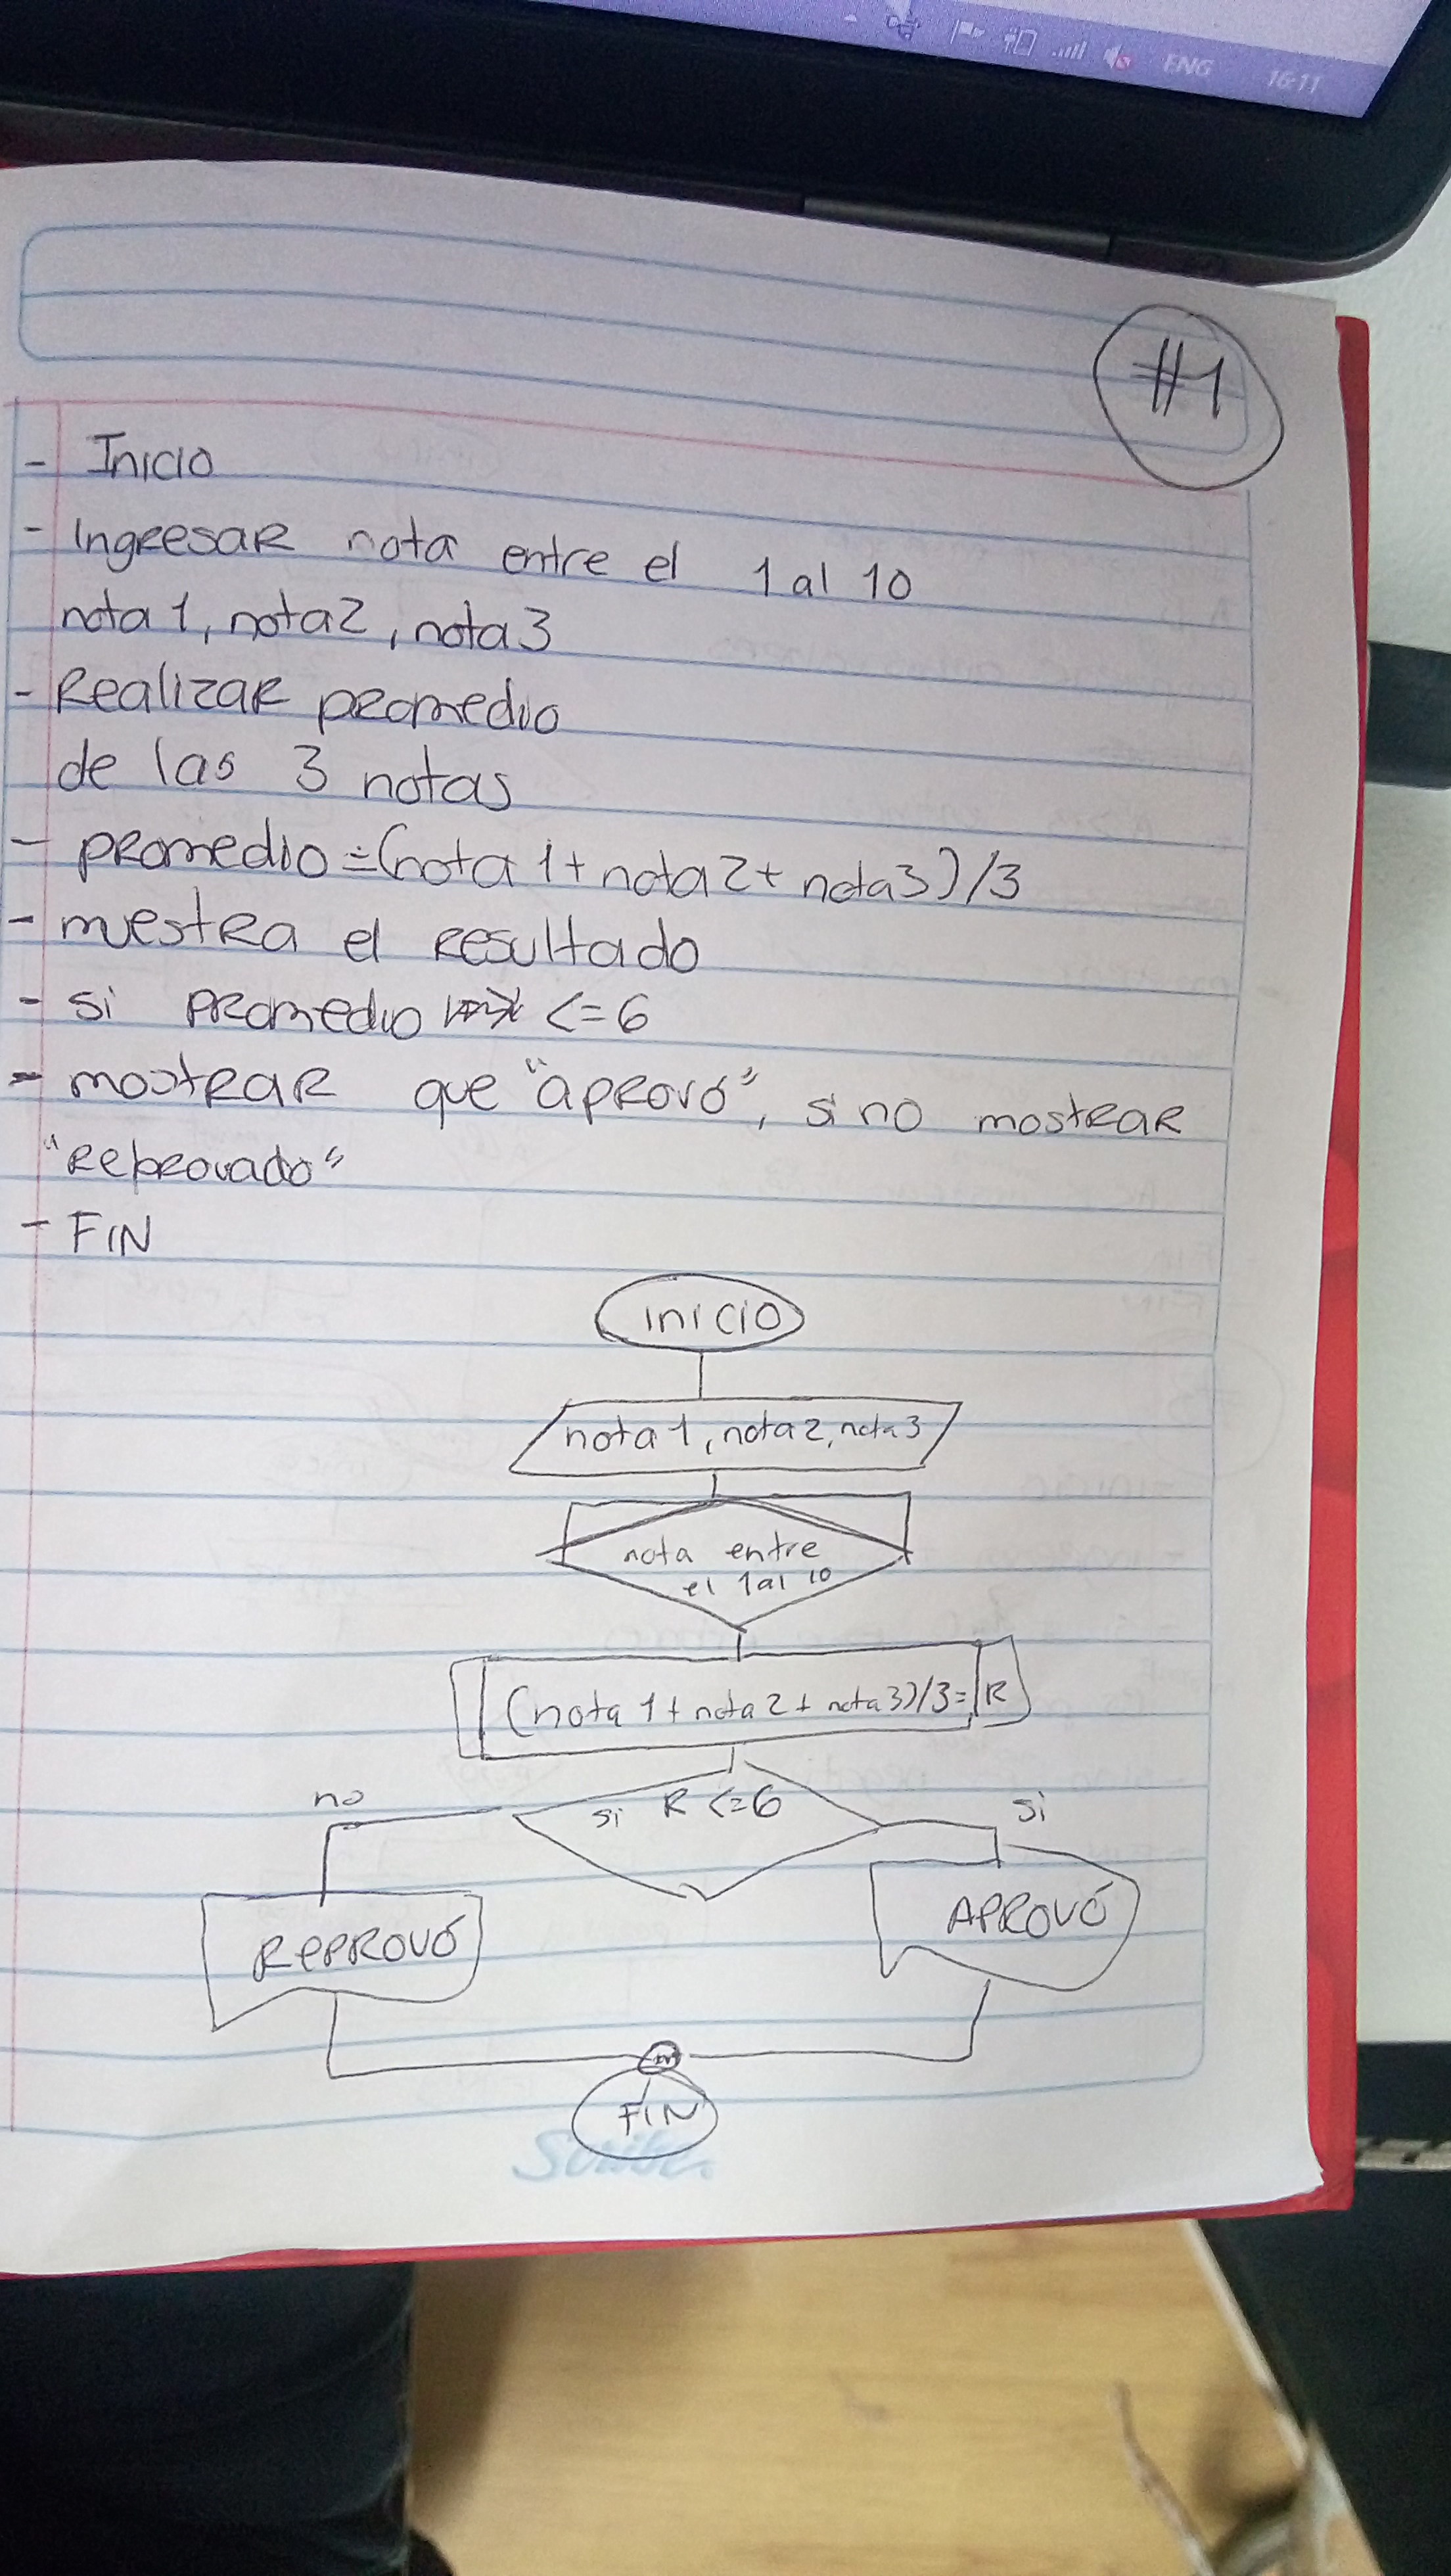 ENG 16:11
#1
- Inicio
- Ingresar nota entre el 1 al 10
nota 1, nota2, nota 3
- Realizar promedio
de las 3 notas
- promedio=(nota 1+nota2+nota3)/3
- muestra el resultado
- si promedio <=6
- mostrar que "aprovó", si no mostrar
"Reprovado"
- FIN
inicio
nota 1, nota 2, nota 3
nota entre
el 1 al 10
(nota 1 + nota 2 + nota 3)/3= R
no
si R <=6
si
REPROVÓ
APROVÓ
FIN